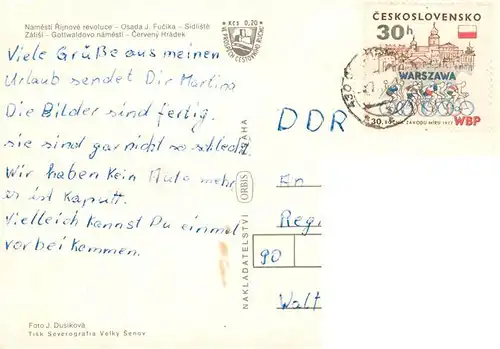 Náměstí Říjnové revoluce - Osada J. Fučíka - Sídliště
Zátiší - Gottwaldovo náměstí - Červený Hrádek
Kčs 0,20
VE PROSPĚCH CESTOVNÍHO RUCHU
Viele Grüße aus meinen
Urlaub sendet Dir Martina
Die Bilder sind fertig.
sie sind gar nicht so schlecht.
Wir haben kein Auto mehr
es ist kaputt.
Vielleich kannst Du einmal
vorbei kommen.
Foto J. Dusíková
Tisk Severografia Velký Šenov
NAKLADATELSTVÍ ORBIS PRAHA
ČESKOSLOVENSKO
30 h
WARSZAWA
30. ZÁVODU MÍRU 1977 WBP
DDR
An
Reg
90
Walt